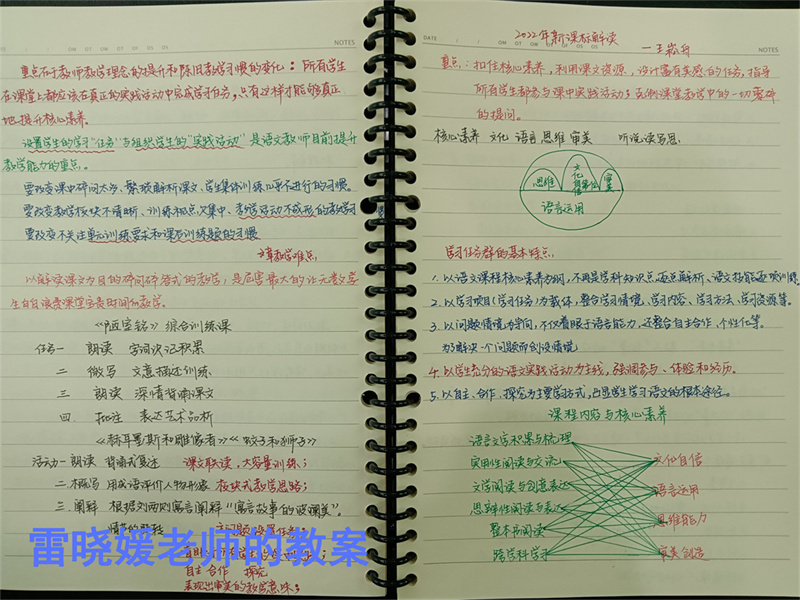 NOTES
重点在于教师教学理念的提升和陈旧教学习惯的变化：所有学生
在课堂上都应该在真正的实践活动中完成学习任务，只有这样才能够真正
地提升核心素养。
设置学生的学习"任务"与组织学生的"实践活动"是语文教师目前提升
教学能力的重点。
要改变课中碎问太多、繁琐解析课文、学生集体训练几乎不进行的习惯。
要改变教学板块不清晰、训练视点欠集中、教学活动不成形的教学习
惯
要改变不关注单元训练要求和课后训练题的习惯
文章教学难点
以解读课文为目的碎问碎答式的教学，是危害最大的让无数学
生白白浪费课堂宝贵时间的教学。
《陋室铭》综合训练课
任务一 朗读 字词识记积累
二 微写 文意描述训练
三 朗读 深情背诵课文
四 批注 表达艺术品析
《赫耳墨斯和雕像者》《蚊子和狮子》
活动一 朗读 背诵式复述 课文联读，大容量训练；
二 概写 用成语评价人物形象 板块式教学思路；
三 阐释 根据刘两则寓言阐释"寓言故事的波澜美"。
情节的
主问题设置任务；
自主 合作 探究
表现出审美的教学意味；
雷晓媛老师的教案
DATE
2022年新课标解读
NOTES
一王崧舟
重点：扣住核心素养，利用课文资源，设计富有美感的任务，指导
所有学生都参与课中实践活动；克制课堂教学中的一切零碎
的提问。
核心素养 文化 语言 思维 审美 听说读写思
思维 文化自信 审美
语言运用
学习任务群的基本特点
1. 以语文课程核心素养为纲，不再是学科知识点逐点解析、语文技能逐项训练
2. 以学习项目（学习任务）为载体，整合学习情境、学习内容、学习方法、学习资源等。
3. 以问题情境为导向，不仅着眼于语言能力，还整合自主合作、个性化等。
为了解决一个问题而创设情境
4. 以学生充分的语文实践活动为主线，强调参与、体验和经历。
5. 以自主、合作、探究为主要学习方式，也是学生学习语文的根本途径。
课程内容与核心素养
语言文字积累与梳理
实用性阅读与交流
文学阅读与创意表达
思辨性阅读与表达
整本书阅读
跨学科学习
文化自信
语言运用
思维能力
审美创造